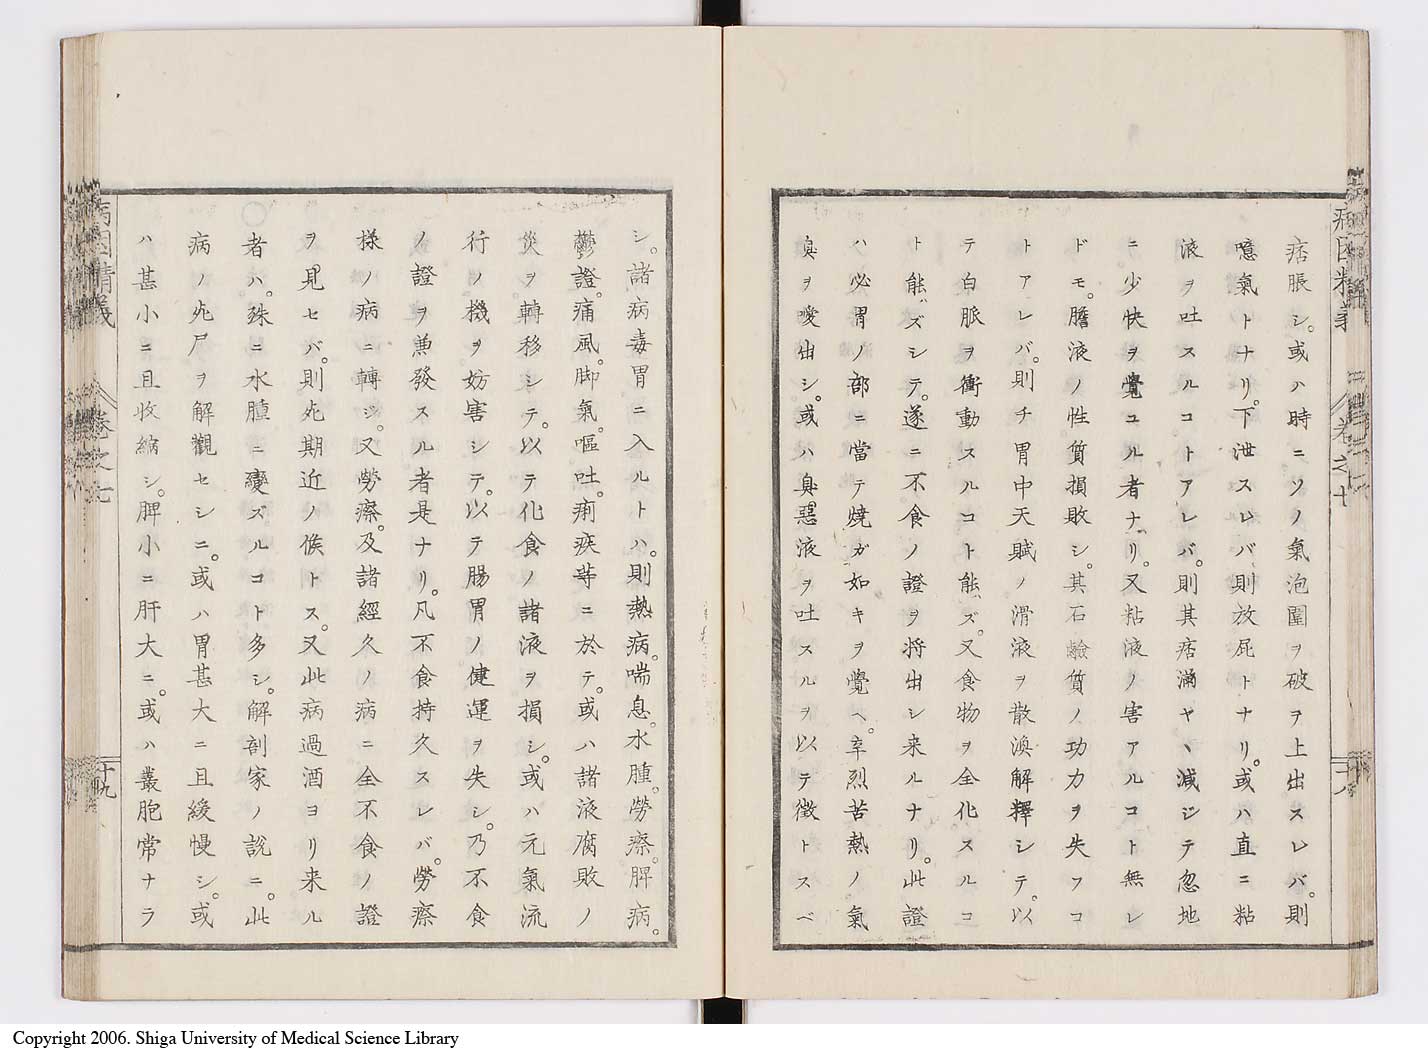 痞脹シ。或ハ時ニソノ氣泡圍ヲ破ヲ上出スレバ。則
噫氣トナリ。下泄スレバ則放屁トナリ。或ハ直ニ粘
液ヲ吐スルコトアレバ。則其痞滿ヤヽ減ジテ忽地
ニ少快ヲ覺ユル者ナリ。又粘液ノ害アルコト無レ
ドモ。膽液ノ性質損敗シ。其石鹸質ノ功力ヲ失フコ
トアレバ。則チ胃中天賦ノ滑液ヲ散渙解釋シテ。以
テ白脈ヲ衝動スルコト能ズ。又食物ヲ全化スルコ
ト能ズシテ。遂ニ不食ノ證ヲ将出シ来ルナリ。此證
ハ必胃ノ部ニ當テ燒ガ如キヲ覺ヘ。辛烈苦熱ノ氣
臭ヲ噯出シ。或ハ臭惡液ヲ吐スルヲ以テ徴トスベ
シ。諸病毒胃ニ入ルトハ。則熱病。喘息。水腫。勞瘵。脾病。
鬱證。痛風。脚氣。嘔吐。痢疾等ニ於テ。或ハ諸液腐敗ノ
災ヲ轉移シテ。以テ化食ノ諸液ヲ損シ。或ハ元氣流
行ノ機ヲ妨害シテ。以テ腸胃ノ健運ヲ失シ。乃不食
ノ證ヲ兼發スル者是ナリ。凡不食持久スレバ。勞瘵
様ノ病ニ轉ジ。又勞瘵。及諸經久ノ病ニ全不食ノ證
ヲ見セバ。則死期近ノ候トス。又此病過酒ヨリ来ル
者ハ。殊ニ水腫ニ變ズルコト多シ。解剖家ノ說ニ。此
病ノ死尸ヲ解觀セシニ。或ハ胃甚大ニ且緩慢シ。或
ハ甚小ニ且收縮シ。脾小ニ肝大ニ。或ハ叢胞常ナラ
病因精義
卷之七
十九
Copyright 2006. Shiga University of Medical Science Library